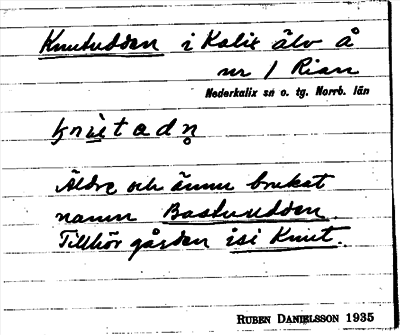 Knutudden i Kalix älv å
nr 1 Rian
Nederkalix sn o. tg. Norrb. län
knùtadṇ
Äldre och ännu brukat
namn Bastuudden.
Tillhör gården isi Knut.
RUBEN DANIELSSON 1935